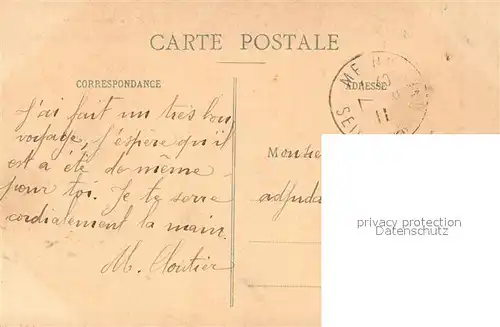 CARTE POSTALE
CORRESPONDANCE
ADRESSE
J'ai fait un très bon
voyage, j'espère qu'il
en a été de même
pour toi. Je te serre
cordialement la main.
M. Cloutier
Monsie
adjuda
privacy protection
Datenschutz